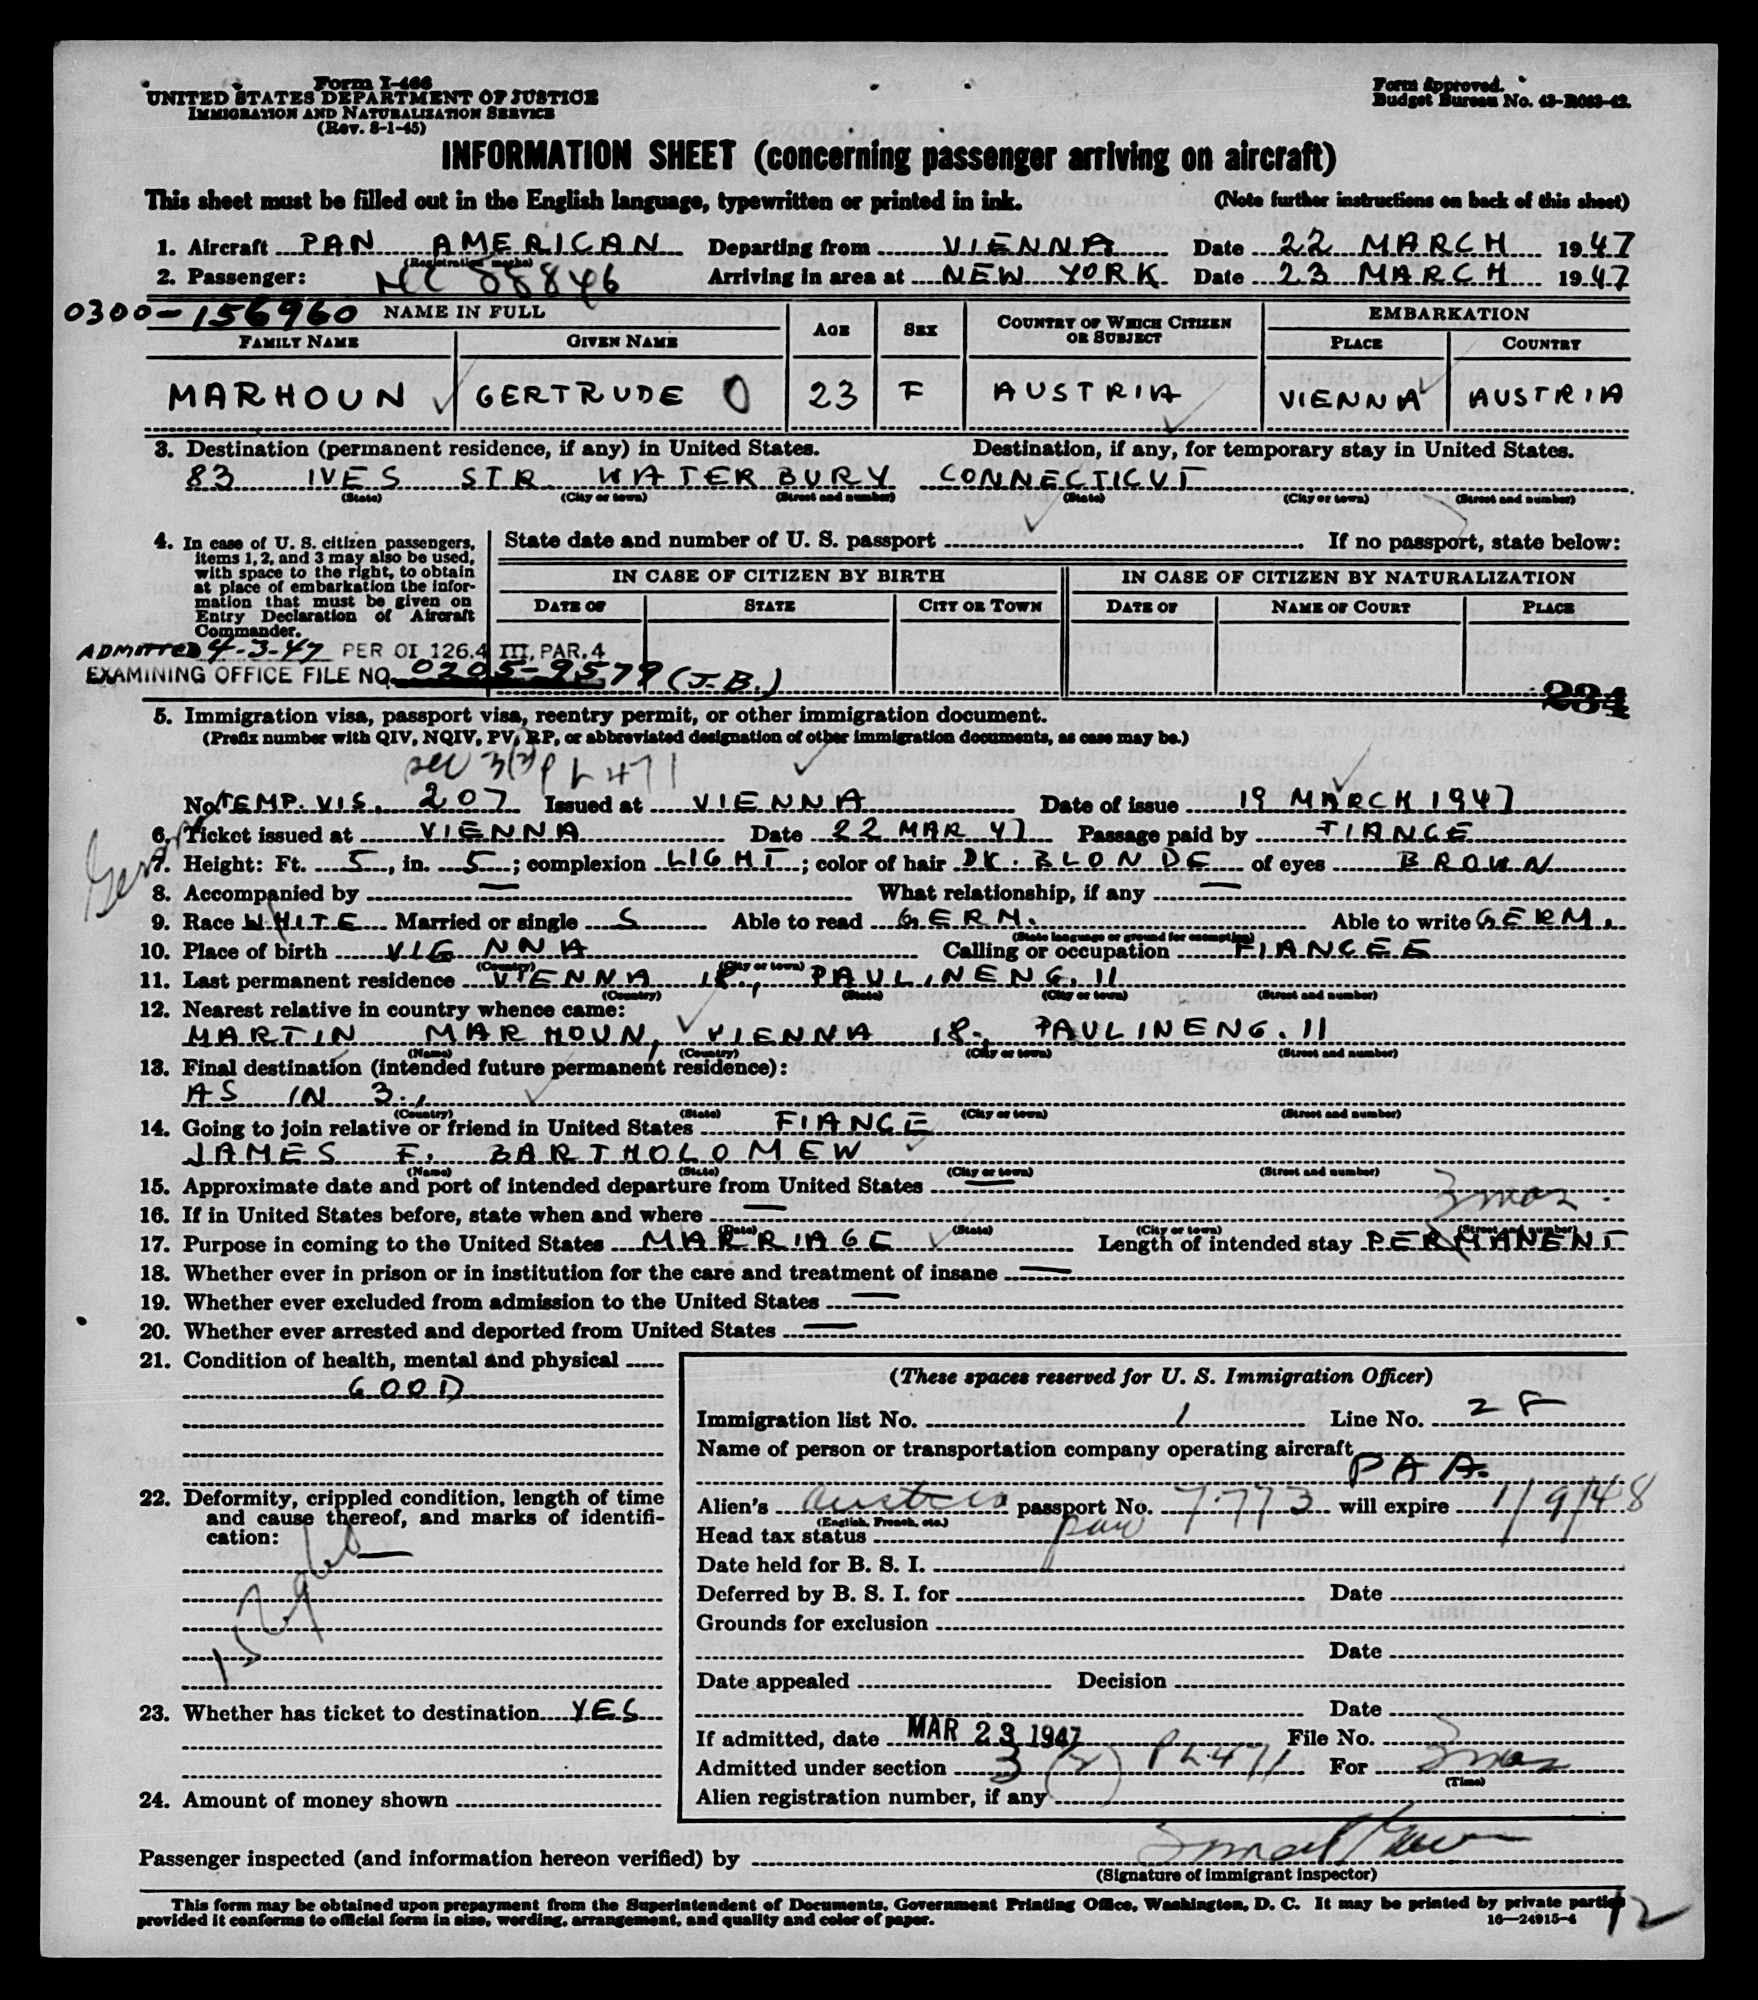 Form I-466
UNITED STATES DEPARTMENT OF JUSTICE
IMMIGRATION AND NATURALIZATION SERVICE
(Rev. 8-1-45)
Form Approved.
Budget Bureau No. 43-R083-42.
INFORMATION SHEET (concerning passenger arriving on aircraft)
This sheet must be filled out in the English language, typewritten or printed in ink. (Note further instructions on back of this sheet)
1. Aircraft PAN AMERICAN Departing from VIENNA Date 22 MARCH 1947
(Registration marks)
2. Passenger: NC 88846 Arriving in area at NEW YORK Date 23 MARCH 1947
0300-156960 NAME IN FULL AGE SEX COUNTRY OF WHICH CITIZEN OR SUBJECT EMBARKATION
FAMILY NAME GIVEN NAME PLACE COUNTRY
MARHOUN GERTRUDE 0 23 F AUSTRIA VIENNA AUSTRIA
3. Destination (permanent residence, if any) in United States. Destination, if any, for temporary stay in United States.
83 IVES STR. WATERBURY CONNECTICUT
(State) (City or town) (Street and number) (State) (City or town) (Street and number)
4. In case of U. S. citizen passengers, items 1, 2, and 3 may also be used, with space to the right, to obtain at place of embarkation the information that must be given on Entry Declaration of Aircraft Commander.
State date and number of U. S. passport If no passport, state below:
IN CASE OF CITIZEN BY BIRTH IN CASE OF CITIZEN BY NATURALIZATION
DATE OF STATE CITY OR TOWN DATE OF NAME OF COURT PLACE
ADMITTED 4-3-47 PER OI 126.4 III, PAR. 4
EXAMINING OFFICE FILE NO. 0205-9579 (J.B.)
284
5. Immigration visa, passport visa, reentry permit, or other immigration document.
(Prefix number with QIV, NQIV, PV, RP, or abbreviated designation of other immigration documents, as case may be.)
sec 3(2) PL 471
No. TEMP. VIS. 207 Issued at VIENNA Date of issue 19 MARCH 1947
6. Ticket issued at VIENNA Date 22 MAR 47 Passage paid by FIANCE
7. Height: Ft. 5, in. 5; complexion LIGHT; color of hair DK. BLONDE of eyes BROWN
8. Accompanied by — What relationship, if any —
9. Race WHITE Married or single S Able to read GERM. Able to write GERM.
(State language or ground for exemption)
10. Place of birth VIENNA Calling or occupation FIANCEE
(Country) (City or town)
11. Last permanent residence VIENNA 18., PAULINENG. 11
(Country) (State) (City or town) (Street and number)
12. Nearest relative in country whence came:
MARTIN MARHOUN, VIENNA 18., PAULINENG. 11
(Name) (Country) (City or town) (Street and number)
13. Final destination (intended future permanent residence):
AS IN 3.,
(Country) (State) (City or town) (Street and number)
14. Going to join relative or friend in United States FIANCE
JAMES F. BARTHOLOMEW
(Name) (State) (City or town) (Street and number)
15. Approximate date and port of intended departure from United States —
3 mos.
16. If in United States before, state when and where —
(Date) (State) (City or town) (Street and number)
17. Purpose in coming to the United States MARRIAGE Length of intended stay PERMANENT
18. Whether ever in prison or in institution for the care and treatment of insane —
19. Whether ever excluded from admission to the United States —
20. Whether ever arrested and deported from United States —
21. Condition of health, mental and physical
GOOD
22. Deformity, crippled condition, length of time and cause thereof, and marks of identification:
—
23. Whether has ticket to destination YES
24. Amount of money shown
(These spaces reserved for U. S. Immigration Officer)
Immigration list No. 1 Line No. 2 F
Name of person or transportation company operating aircraft
PAA.
Alien's Austria passport No. 7773 will expire 1/9/48
(English, French, etc.)
Head tax status
Date held for B. S. I.
Deferred by B. S. I. for Date
Grounds for exclusion
Date
Date appealed Decision
Date
If admitted, date MAR 23 1947 File No.
Admitted under section 3 (2) PL 471 For 3 mos
(Time)
Alien registration number, if any
Passenger inspected (and information hereon verified) by
(Signature of immigrant inspector)
This form may be obtained upon prepayment from the Superintendent of Documents, Government Printing Office, Washington, D. C. It may be printed by private parties
provided it conforms to official form in size, wording, arrangement, and quality and color of paper. 16—24915-4
12